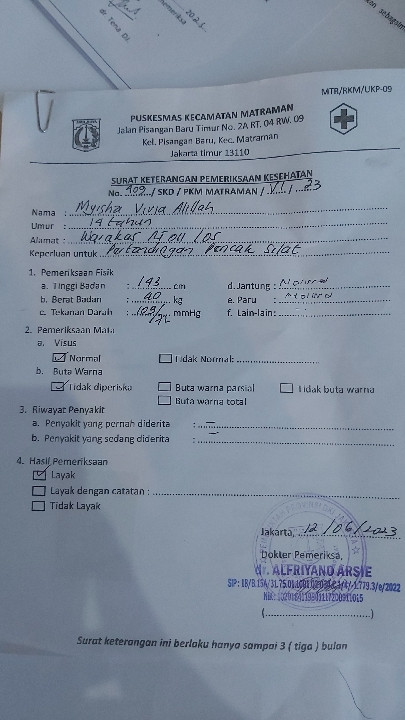 dr. Tena Di
2025
MTR/RKM/UKP-09
PUSKESMAS KECAMATAN MATRAMAN
Jalan Pisangan Baru Timur No. 2A RT. 04 RW. 09
Kel. Pisangan Baru, Kec. Matraman
Jakarta timur 13110
SURAT KETERANGAN PEMERIKSAAN KESEHATAN
No. 909 / SKD / PKM MATRAMAN / VI / 23
Nama : Myisha Alillah
Umur : 14 tahun
Alamat : Warakas
Keperluan untuk : Pertandingan Pencak Silat
1. Pemeriksaan Fisik
a. Tinggi Badan : 143 cm d. Jantung : Normal
b. Berat Badan : 40 kg e. Paru : Normal
c. Tekanan Darah : mmHg f. Lain-lain:
2. Pemeriksaan Mata
a. Visus
Normal Tidak Normal:
b. Buta Warna
Tidak diperiksa Buta warna parsial Tidak buta warna
Buta warna total
3. Riwayat Penyakit
a. Penyakit yang pernah diderita : -
b. Penyakit yang sedang diderita : -
4. Hasil Pemeriksaan
Layak
Layak dengan catatan :
Tidak Layak
Jakarta, 12/06/2023
Dokter Pemeriksa,
dr. ALFRIYANO ARSIE
(....................)
Surat keterangan ini berlaku hanya sampai 3 ( tiga ) bulan